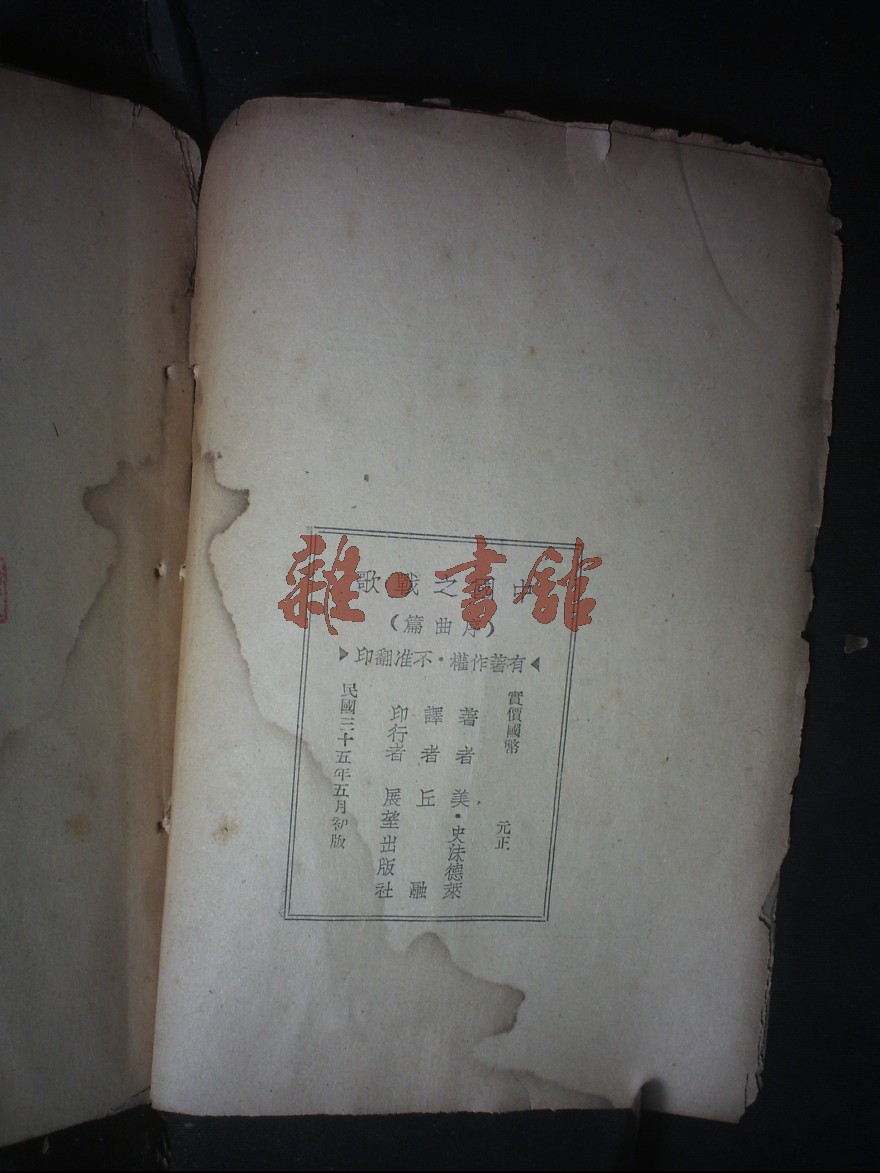 雜·書館
中國之戰歌
(序曲篇)
有著作權·不准翻印
實價國幣 元正
著者 美·史沫德萊
譯者 丘融
印行者 展望出版社
民國三十五年五月初版